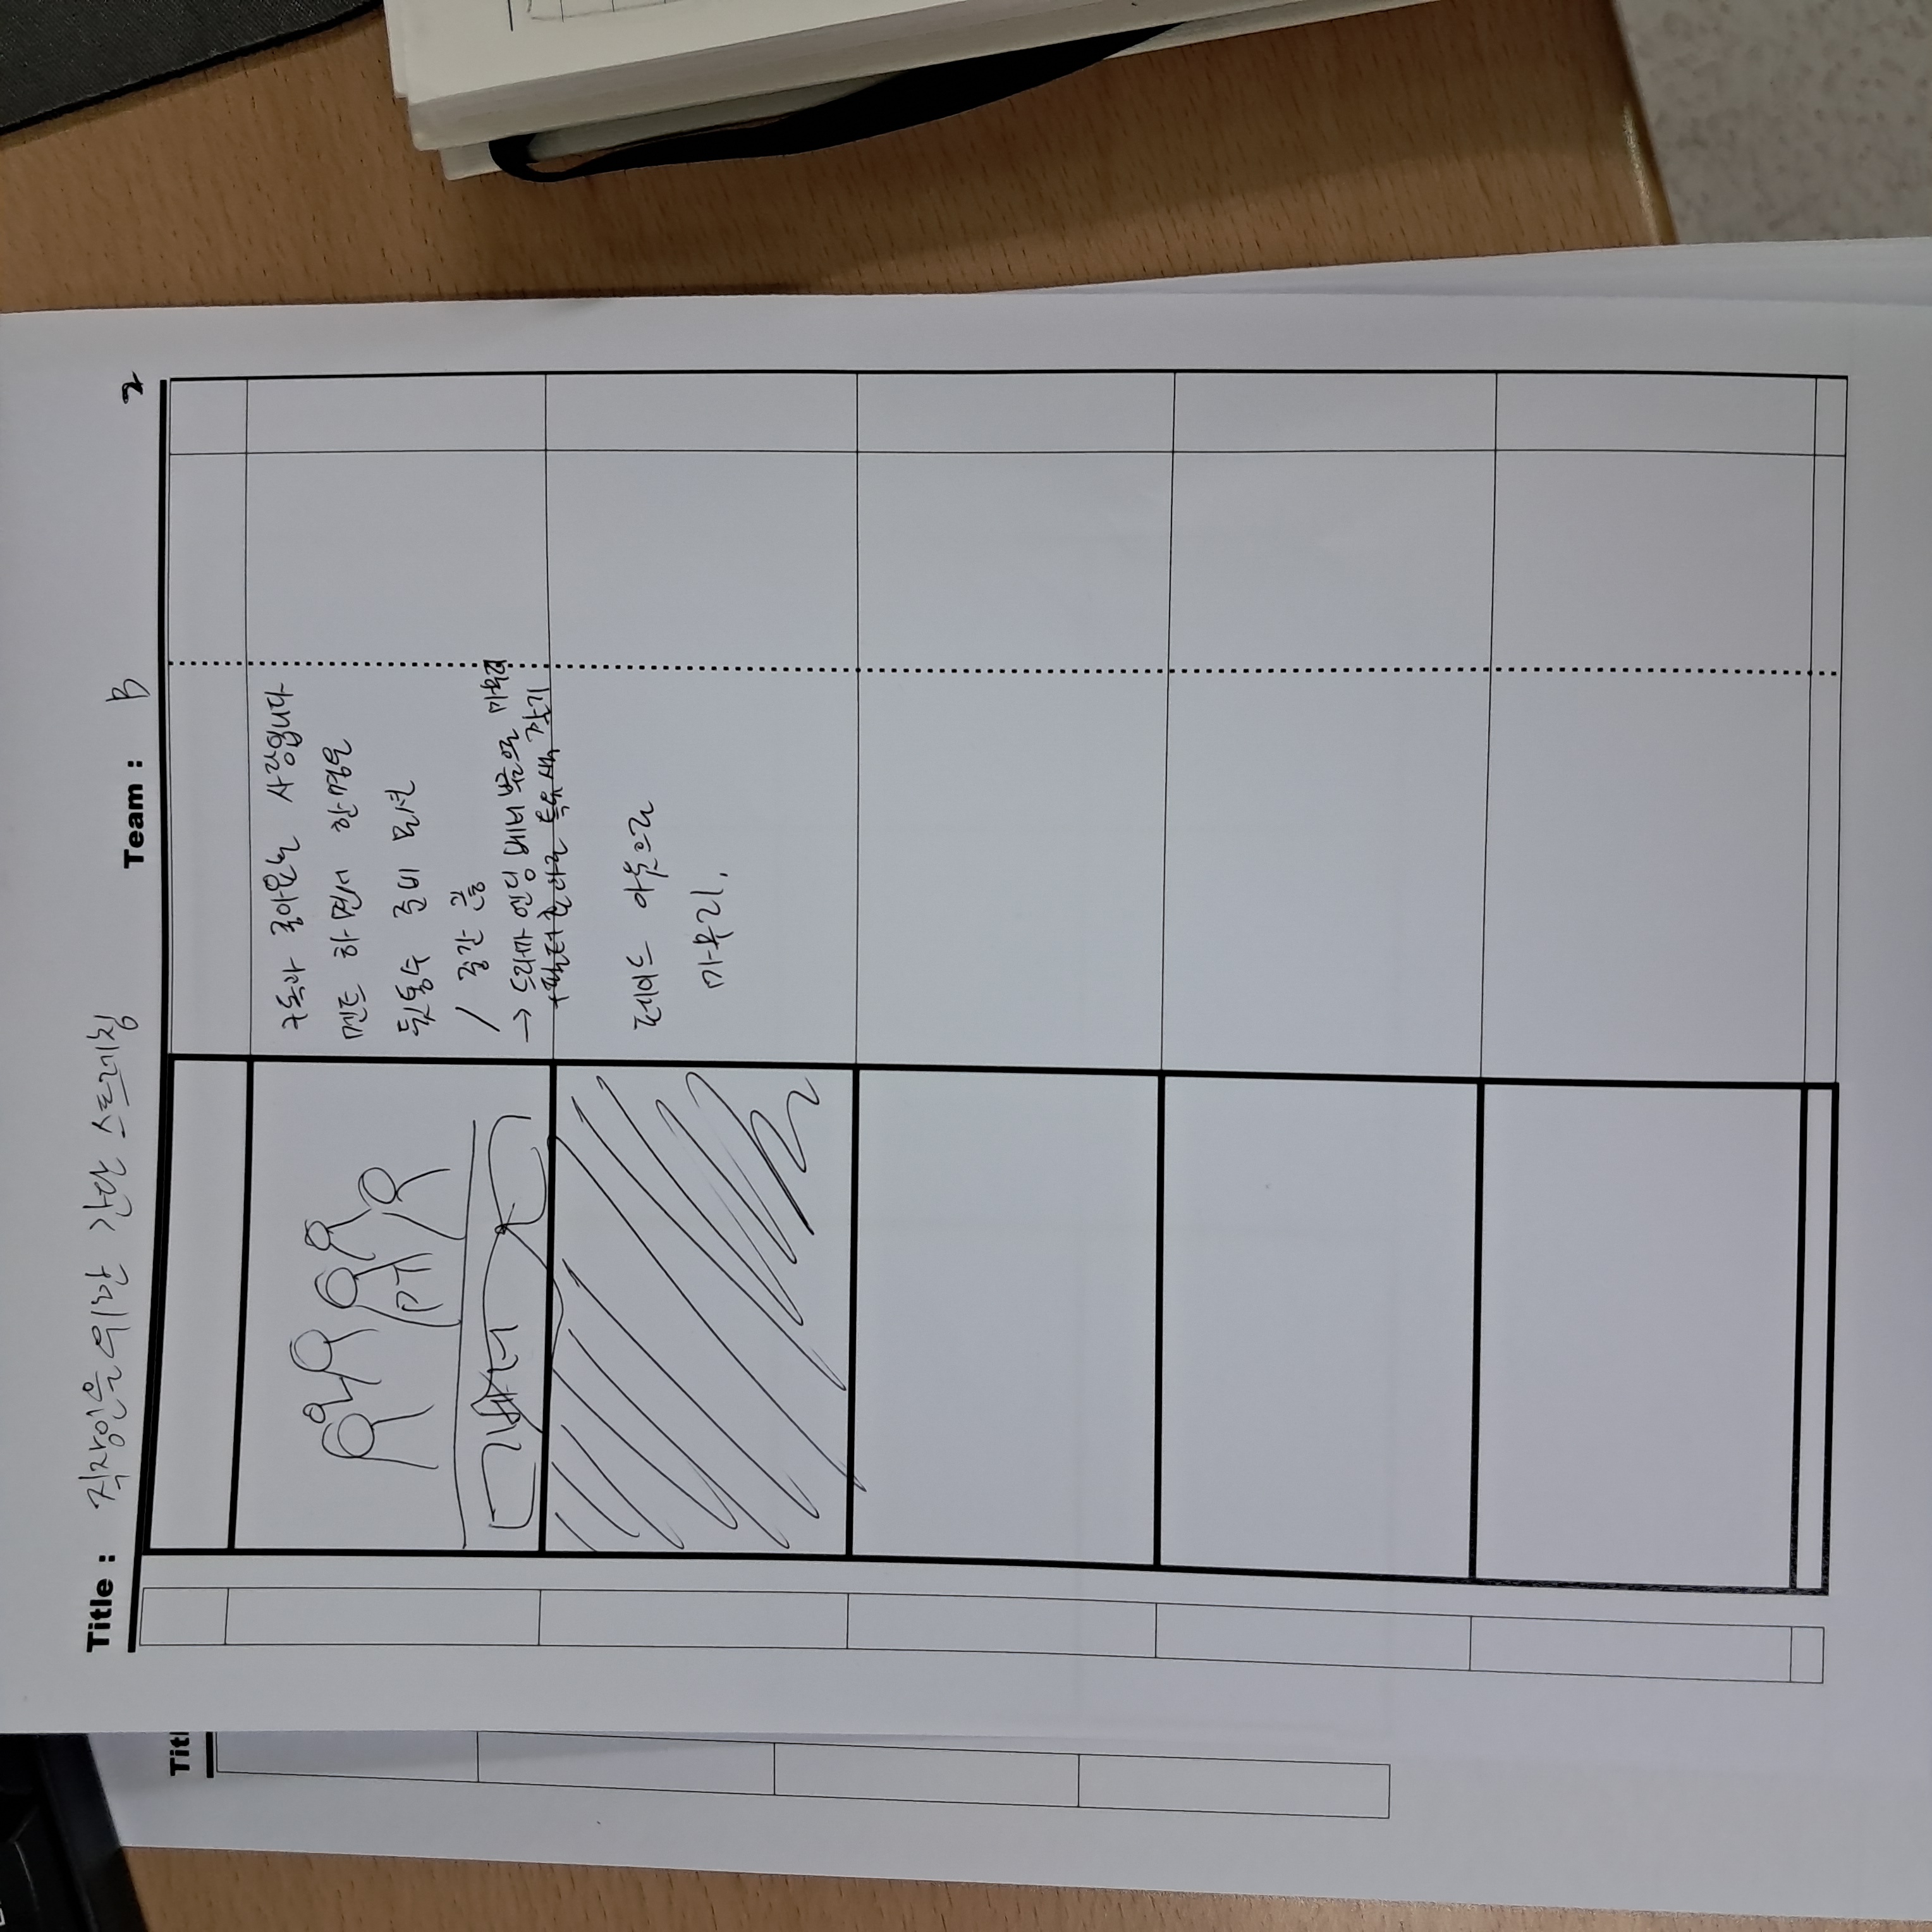 Title : 직장인을 위한 간단 스트레칭
Team : B
2
Titl
PT
구독과 좋아요는 사랑입니다
멘트 하면서 한명은
뒷통수 준비 모션
/ 중간 끊
→ 드라마 엔딩 베너 붙음으로 마무리
+필터 효과로 특유색 잡기
페이드 아웃으로
마무리.